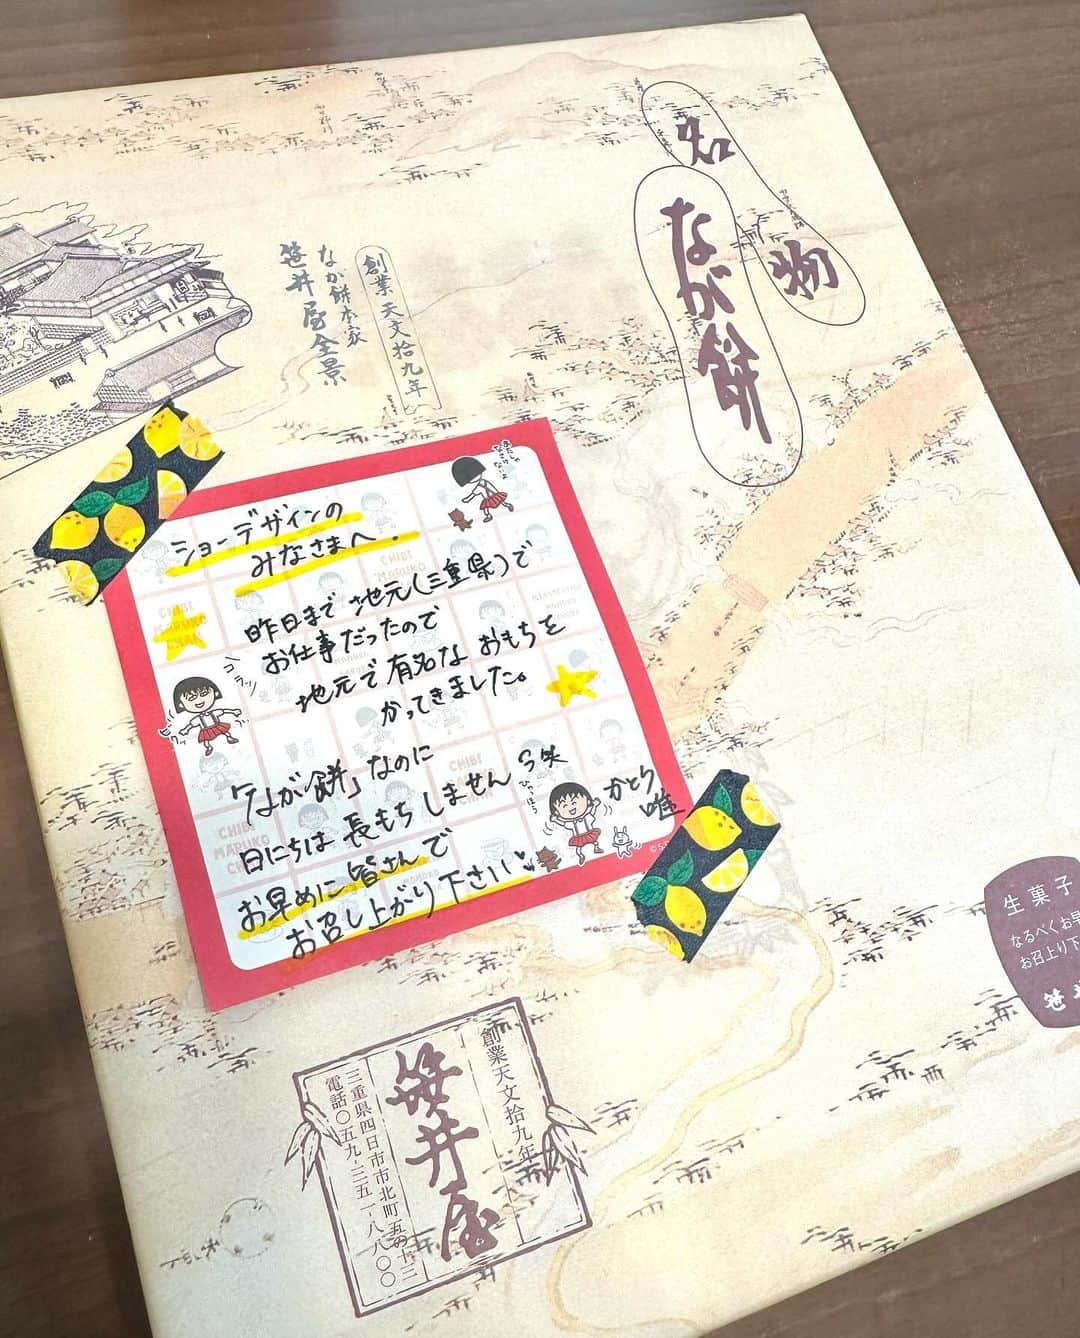 名物
なが餅
創業天文拾九年
なが餅本家
笹井屋全景
ショーデザインの
みなさまへ.
昨日まで地元(三重県)で
お仕事だったので
地元で有名なおもちを
かってきました。
「なが餅」なのに
日にちは長もちしません
お早めに皆さんで
お召し上がり下さい
かとう
唯
コラッ
CHIBI
MARUKO
CHIBI
MARUKO
CHIBI
MARUKO
生菓子
なるべくお早
お召上り下
笹
創業天文拾九年
笹井屋
三重県四日市市北町五の十三
電話〇五九-三五一-八八〇〇